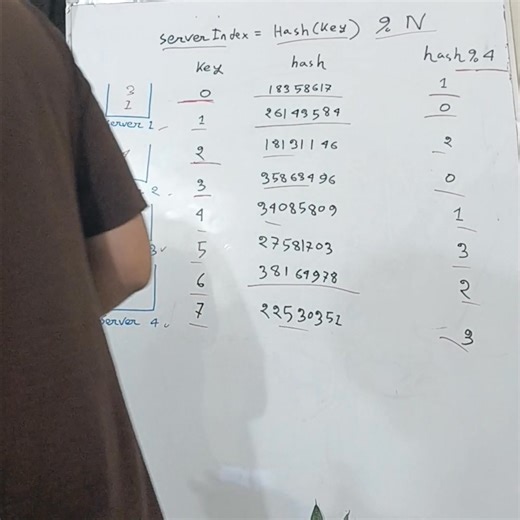 serverIndex = Hash(Key) % N
Key hash hash%4
0 18358617 1
1 26143584 0
2 18131146 2
3 35863496 0
4 34085809 1
5 27581703 3
6 38164978 2
7 22530351 3
3
1
server 1
2
3
server 4